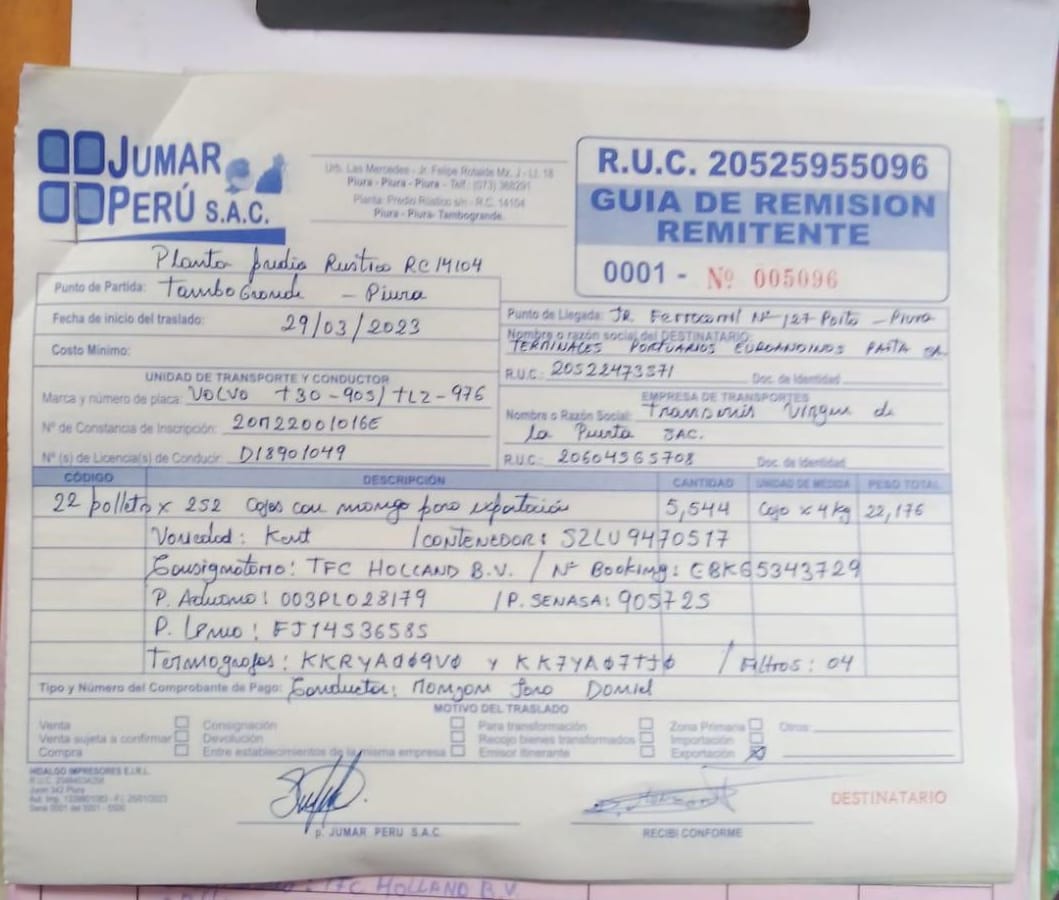 JUMAR
PERÚ S.A.C.
Urb. Las Mercedes - Jr. Felipe Rotalde Mz. J - Lt. 18
Piura - Piura - Piura - Telf.: (073) 368291
Planta: Predio Rústico s/n - R.C. 14104
Piura - Piura- Tambogrande.
R.U.C. 20525955096
GUIA DE REMISION
REMITENTE
0001 - Nº 005096
Planta predio Rustico RC 14104
Punto de Partida: TamboGrande - Piura
Fecha de inicio del traslado: 29/03/2023
Costo Mínimo:
Punto de Llegada: JR. Ferrocarril Nº 127 Paita - Piura
Nombre o razón social del DESTINATARIO:
TERMINALES PORTUARIOS EUROANDINOS PAITA SA.
R.U.C.: 20522473571 Doc. de Identidad
UNIDAD DE TRANSPORTE Y CONDUCTOR
Marca y número de placa: VOLVO T30-905/TLZ-976
Nº de Constancia de Inscripción: 20M22001016E
Nº (s) de Licencia(s) de Conducir: D18901049
EMPRESA DE TRANSPORTES
Nombre o Razón Social: Virgen de
la Puerta SAC.
R.U.C.: 20604565708 Doc. de Identidad
CÓDIGO DESCRIPCIÓN CANTIDAD UNIDAD DE MEDIDA PESO TOTAL
22 pallets x 252 Cajas con mango para exportación 5,544 Caja x 4 kg 22,176
Variedad: Kent / CONTENEDOR: SZLU9470517
Consignatario: TFC HOLLAND B.V. / Nº Booking: CBK65343729
P. Aduana: 003PL028179 / P. SENASA: 905725
P. Linea: FJ14536585
Termografos: KKRYA069V0 y KK7YA07TJ0 / Filtros: 04
Tipo y Número del Comprobante de Pago: Conductor:
MOTIVO DEL TRASLADO
Venta Consignación Para transformación Zona Primaria Otros:
Venta sujeta a confirmar Devolución Recojo bienes transformados Importación
Compra Entre establecimientos de la misma empresa Emisor Itinerante Exportación X
HIDALGO IMPRESORES E.I.R.L.
p. JUMAR PERU S.A.C.
RECIBI CONFORME
DESTINATARIO
TFC HOLLAND B.V.